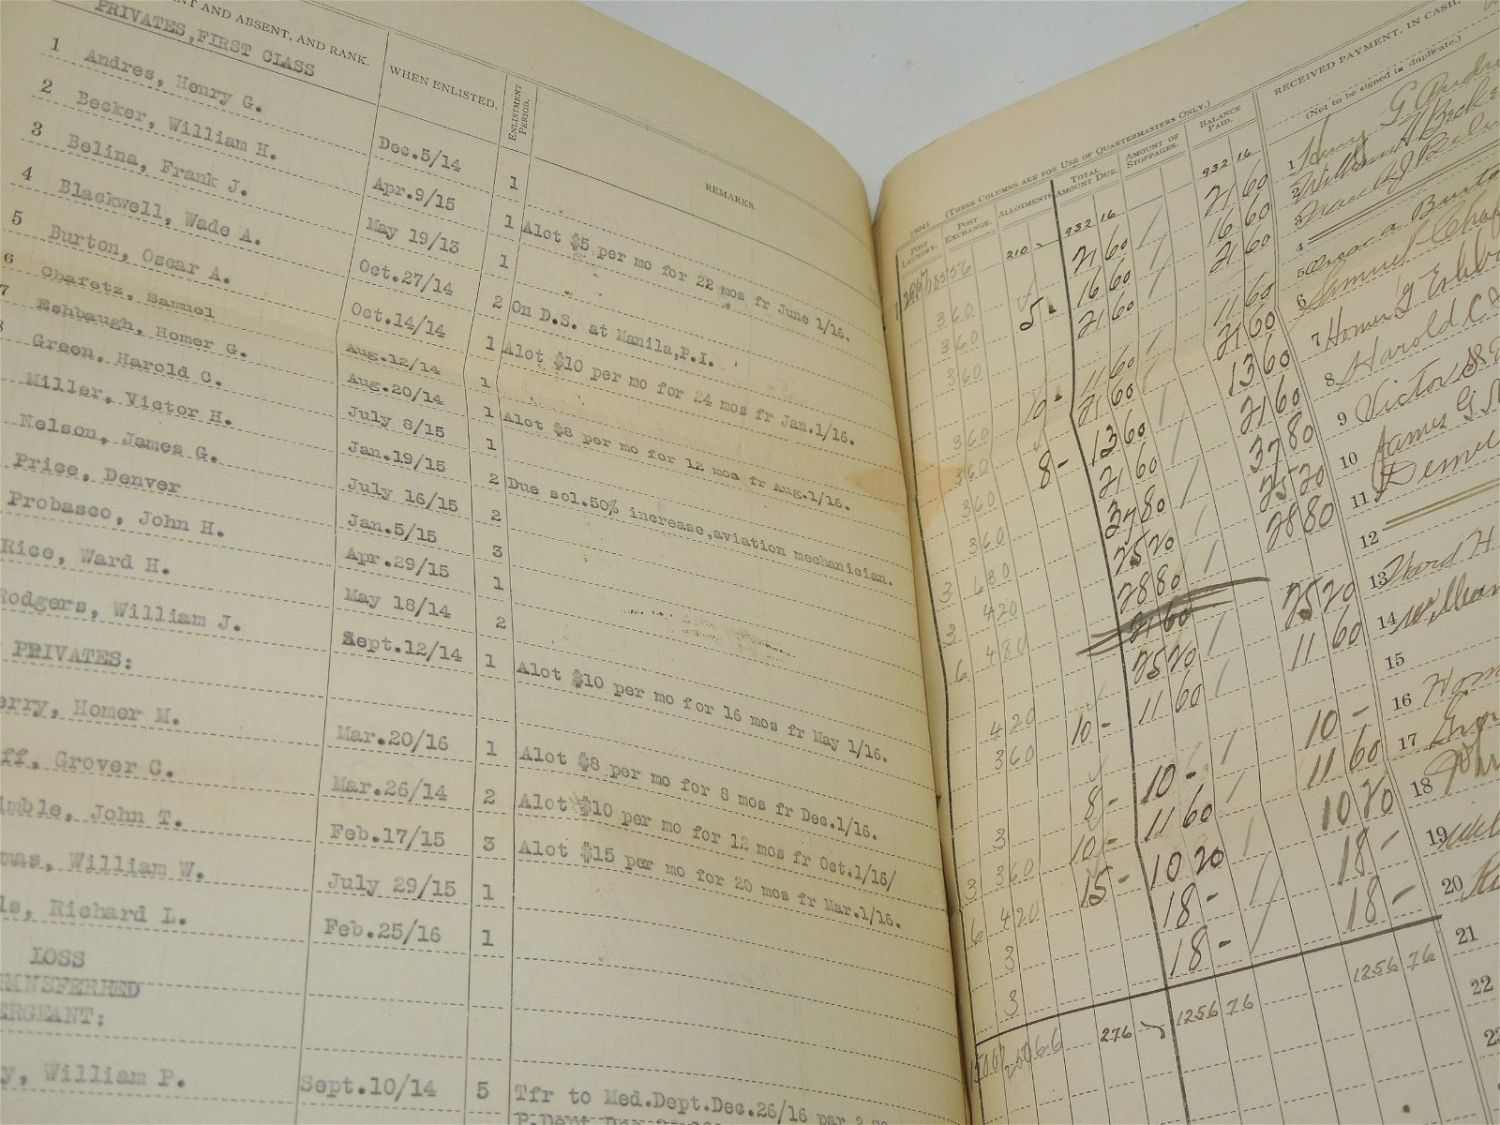 NT AND ABSENT, AND RANK.
WHEN ENLISTED.
ENLISTMENT PERIOD.
REMARKS.
PRIVATES, FIRST CLASS
1 Andres, Henry G. Dec.5/14 1
2 Becker, William H. Apr.9/15 1 Alot $5 per mo for 22 mos fr June 1/16.
3 Belina, Frank J. May 19/13 1
4 Blackwell, Wade A. Oct.27/14 2 On D.S. at Manila,P.I.
5 Burton, Oscar A. Oct.14/14 1 Alot $10 per mo for 24 mos fr Jan.1/16.
6 Charetz, Samuel Aug.12/14 1
7 Eshbaugh, Homer G. Aug.20/14 1 Alot $8 per mo for 12 mos fr Aug.1/16.
Green, Harold C. July 8/15 1
Miller, Victor H. Jan.19/15 2 Due sol.50% increase,aviation mechanician.
Nelson, James G. July 16/15 2
Price, Denver Jan.5/15 3
Probasco, John H. Apr.29/15 1
Rice, Ward H. May 18/14 2
Rodgers, William J. Sept.12/14 1 Alot $10 per mo for 16 mos fr May 1/16.
PRIVATES:
erry, Homer M. Mar.20/16 1 Alot $8 per mo for 8 mos fr Dec.1/16.
ff, Grover C. Mar.26/14 2 Alot $10 per mo for 12 mos fr Oct.1/16/
imble, John T. Feb.17/15 3 Alot $15 per mo for 20 mos fr Mar.1/16.
mas, William W. July 29/15 1
ls, Richard L. Feb.25/16 1
LOSS
RANSFERRED
ERGEANT:
y, William P. Sept.10/14 5 Tfr to Med.Dept.Dec.26/16 par 2
(THESE COLUMNS ARE FOR USE OF QUARTERMASTERS ONLY.)
POST LAUNDRY.
POST EXCHANGE.
ALLOTMENTS
TOTAL AMOUNT DUE.
AMOUNT OF STOPPAGES.
BALANCE PAID.
RECEIVED PAYMENT, IN CASH,
(Not to be signed in duplicate.)
210 932 16 932 16
360 21 60 21 60 1 Henry G Andre
360 5 16 60 16 60 2 William H Becke
360 21 60 21 60 3 Frank J Belin
4
360 10 - 11 60 11 60 5 Oscar A Burto
360 21 60 21 60 6 Samuel Cha
360 8 - 13 60 13 60 7 Homer G Eshba
360 21 60 21 60 8 Harold C
3 630 37 80 37 80 9 Victor H
3 420 25 20 25 20 10 James G
6 480 28 80 28 80 11 Denve
21 60 12
420 25 20 25 20 13 Ward H
360 10 - 11 60 11 60 14 William
15
3 8 - 10 - 10 - 16 Hom
3 360 10 - 11 60 11 60 17 Gro
6 420 15 - 10 20 10 20 18 John
3 18 - 18 - 19 Wil
3 18 - 18 - 20 Ri
276 1256 76 1256 76
21
22